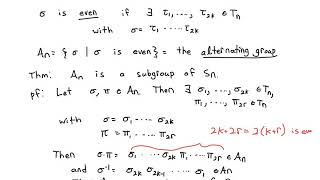 σ is even if ∃ τ₁, ..., τ₂ₖ ∈ Tₙ
with σ = τ₁ ⋯ τ₂ₖ
Aₙ = { σ | σ is even } = the alternating group
Thm: Aₙ is a subgroup of Sₙ.
pf: Let σ, π ∈ Aₙ. Then ∃ σ₁, ..., σ₂ₖ, π₁, ..., π₂ᵣ ∈ Tₙ
with σ = σ₁ ⋯ σ₂ₖ
π = π₁ ⋯ π₂ᵣ
2k+2r = 2(k+r) is
Then σπ = σ₁ ⋯ σ₂ₖ π₁ ⋯ π₂ᵣ ∈ Aₙ
and σ⁻¹ = σ₂ₖ σ₂ₖ₋₁ ⋯ σ₁ ∈ Aₙ